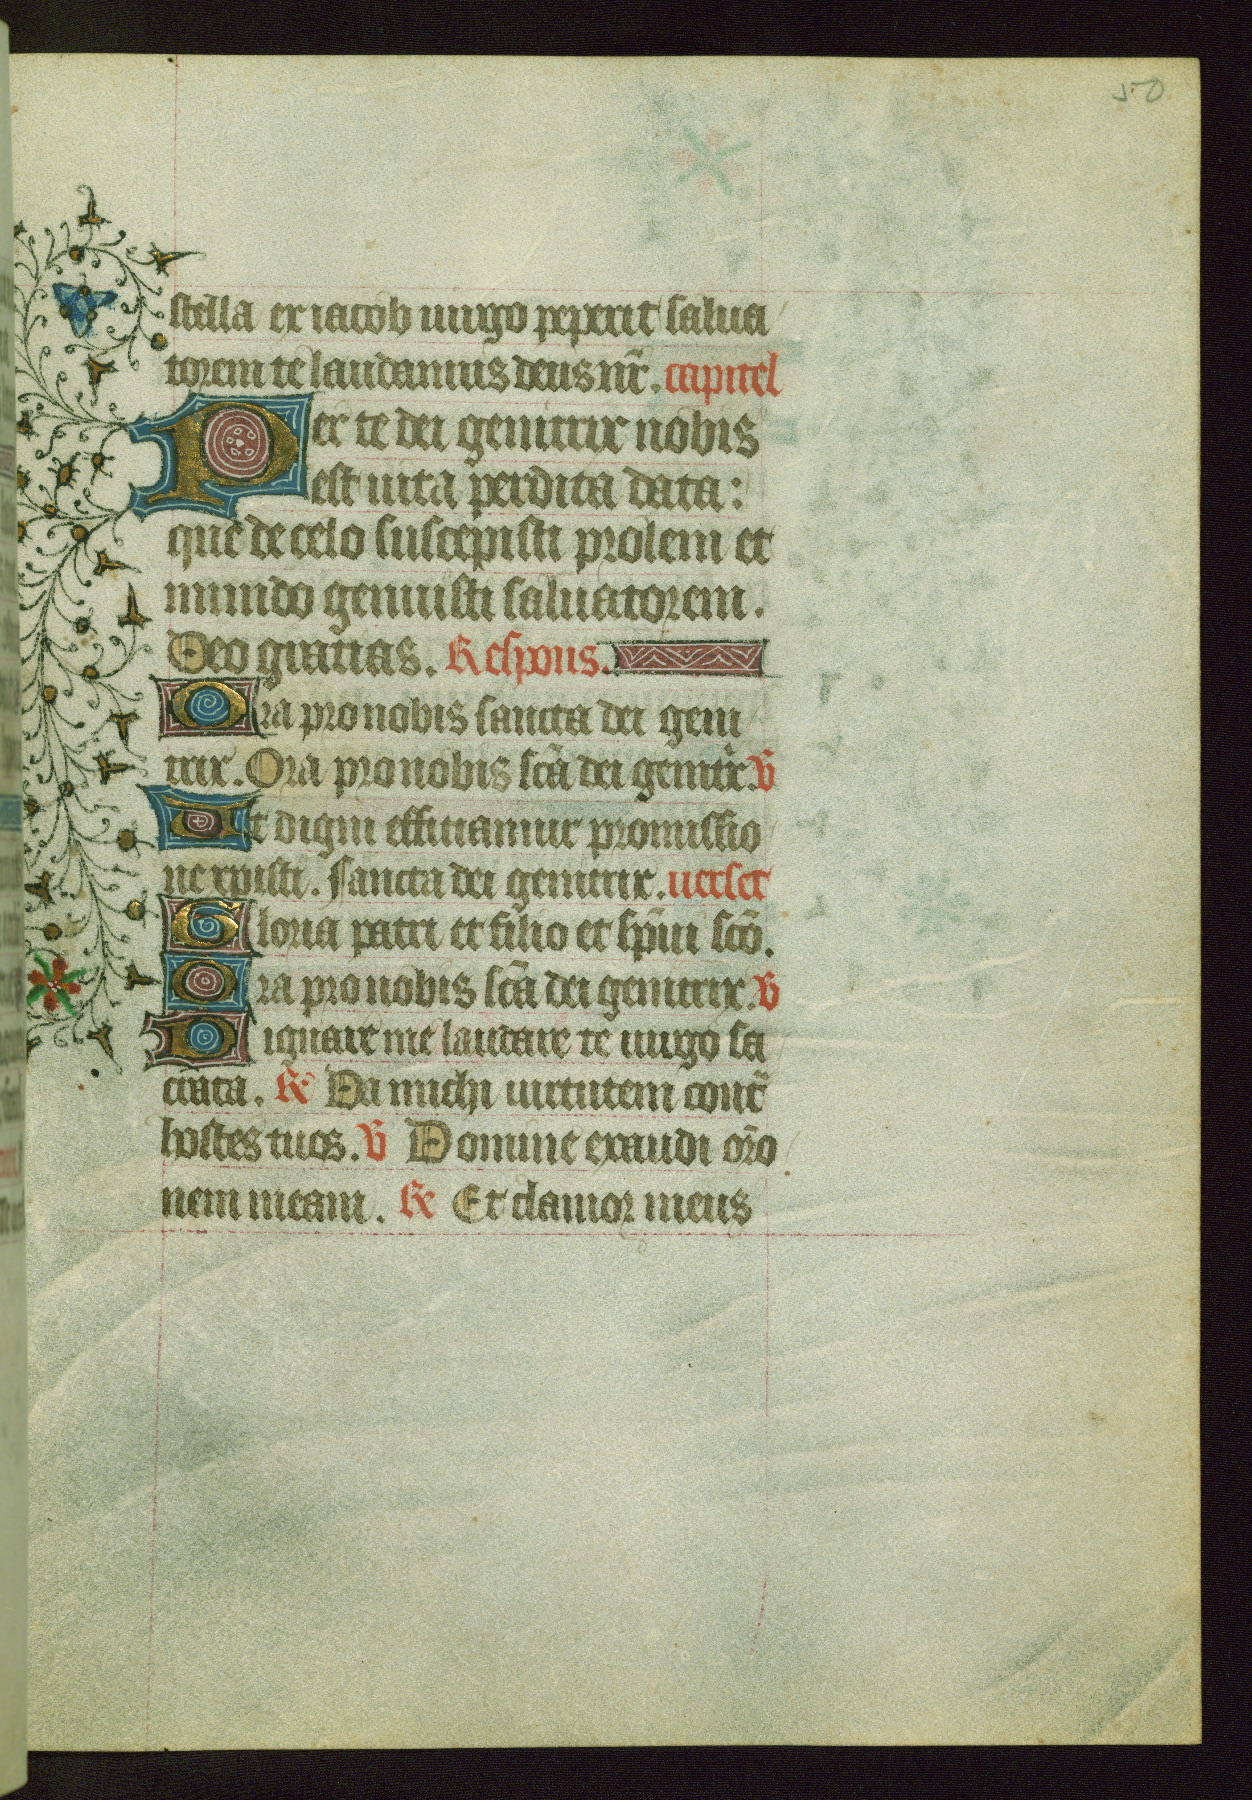 50
stella ex iacob uirgo peperit salua
torem te laudamus deus nr̃. capitel
Per te dei genitrix nobis
est uita perdita data:
que de celo suscepisti prolem et
mundo genuisti saluatorem.
Deo gratias. Respons.
Ora pro nobis sancta dei geni
trix. Ora pro nobis scã dei genitr̃x. V̄
Ut digni efficiamur promissio
ne xpisti. Sancta dei genitrix. uerset
Gloria patri et filio et sp̃ui scõ.
Ora pro nobis scã dei genitrix. V̄
Dignare me laudare te uirgo sa
crata. R̃ Da michi uirtutem contr̃
hostes tuos. V̄ Domine exaudi orõ
nem meam. R̃ Et clamor meus